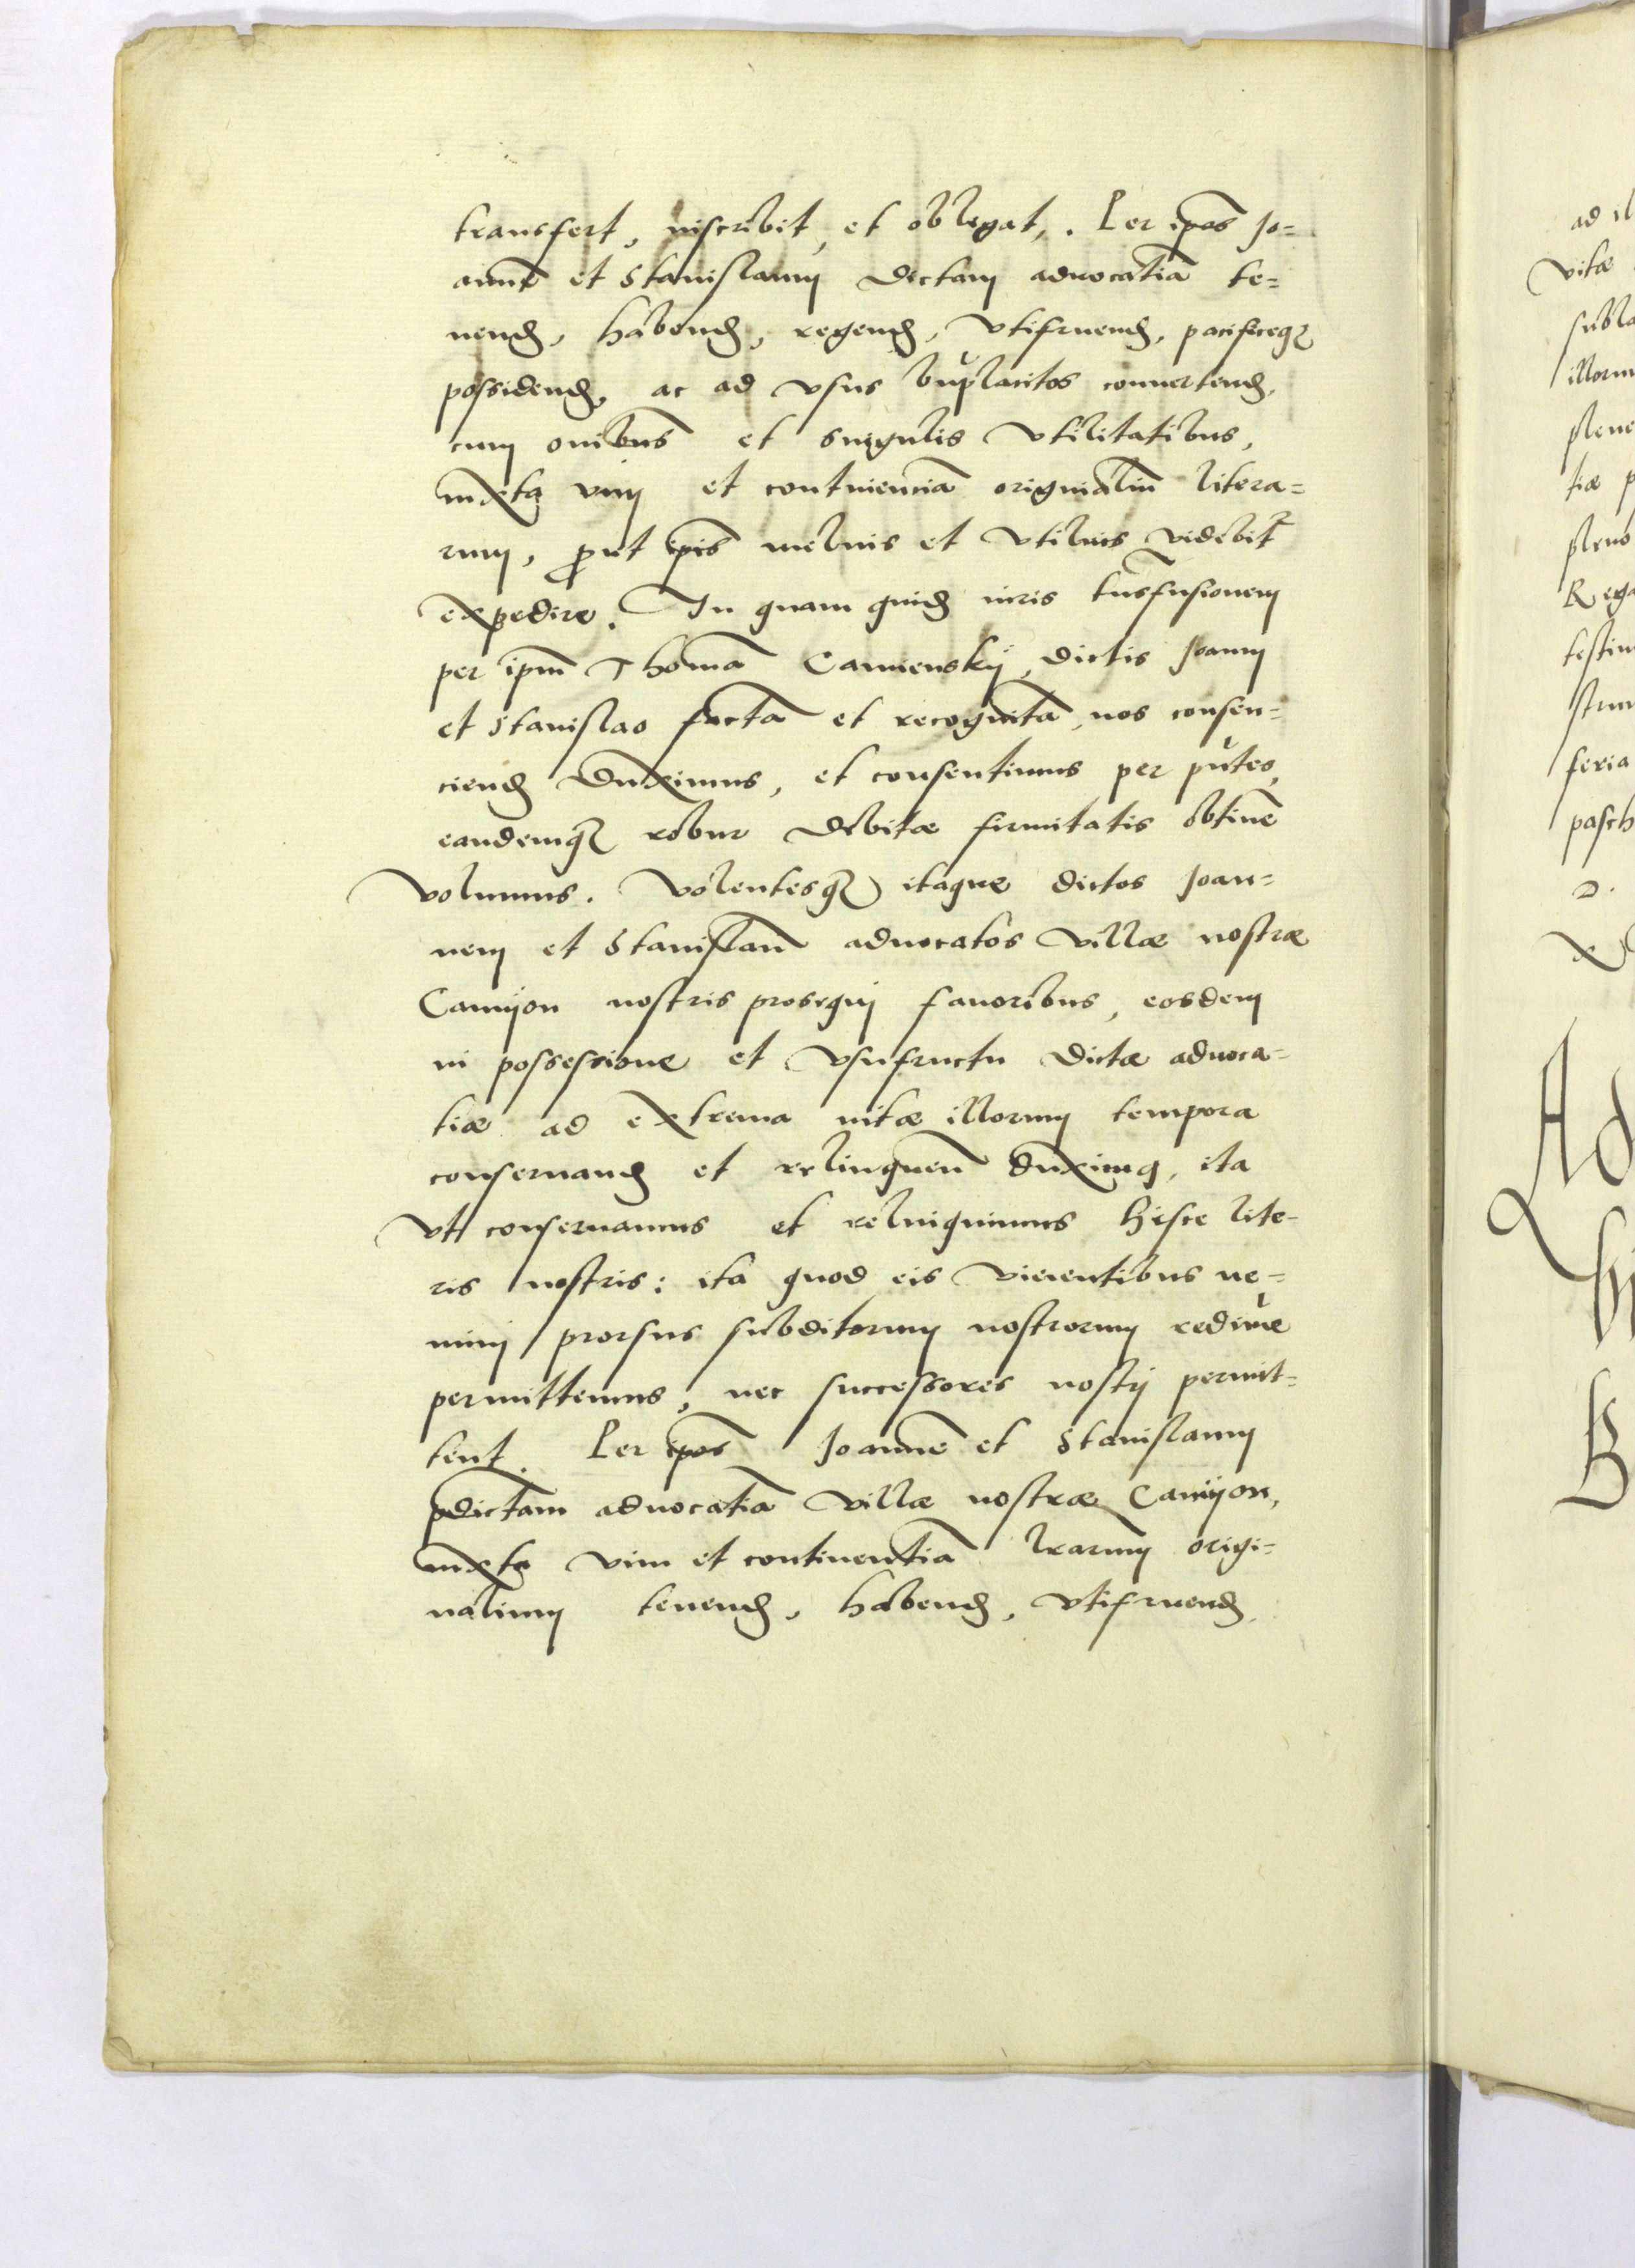 transfert, inscribit, et oblegat,. Per ipos Jo=
annē et Stanislaum dictam aduocatiā te=
nend, habend, regend, vtifruend, pacificeqz
possidend, ac ad vsus bnplacitos conuertend,
cum oīnibus et singulis vtilitatibus,
iuxta vim et continenciā originaliū litera=
rum, prout ipis melius et vtilius videbitr
expedire. In quam quid iuris tnsfusionem
per ipm Thomā Camiensky, dictis Joanni
et Stanislao factā et recognitā, nos consen=
ciend duximus, et consentimus per pntes,
eandemqz robur debitæ firmitatis obtinē
volumus. Volentesqz itaque dictos Joan=
nem et Stanislaū aduocatos villæ nostræ
Camyon nostris prosequi fauoribus, eosdem
in possessione et vsufructu dictæ aduoca=
tiæ ad extrema uitæ illorum tempora
conseruand et relinquen duximq, ita
vti conseruamus et relinquimus hisce lite-
ris nostris: ita quod eis viuentibus ne=
mini prorsus subditorum nostrorum redime
permittemus, nec successores nostrj permit=
tent. Per ipos Joannē et Stanislaum
pdictam aduocatiā villæ nostræ Camyon,
iuxta vim et continentiā lrarum origi=
nalium tenend, habend, vtifruend,
ad il
vitæ
subla
illorum
plene
tiæ p
pleno
Rega
testim
strum
feria
pasch
D.
Ad
B